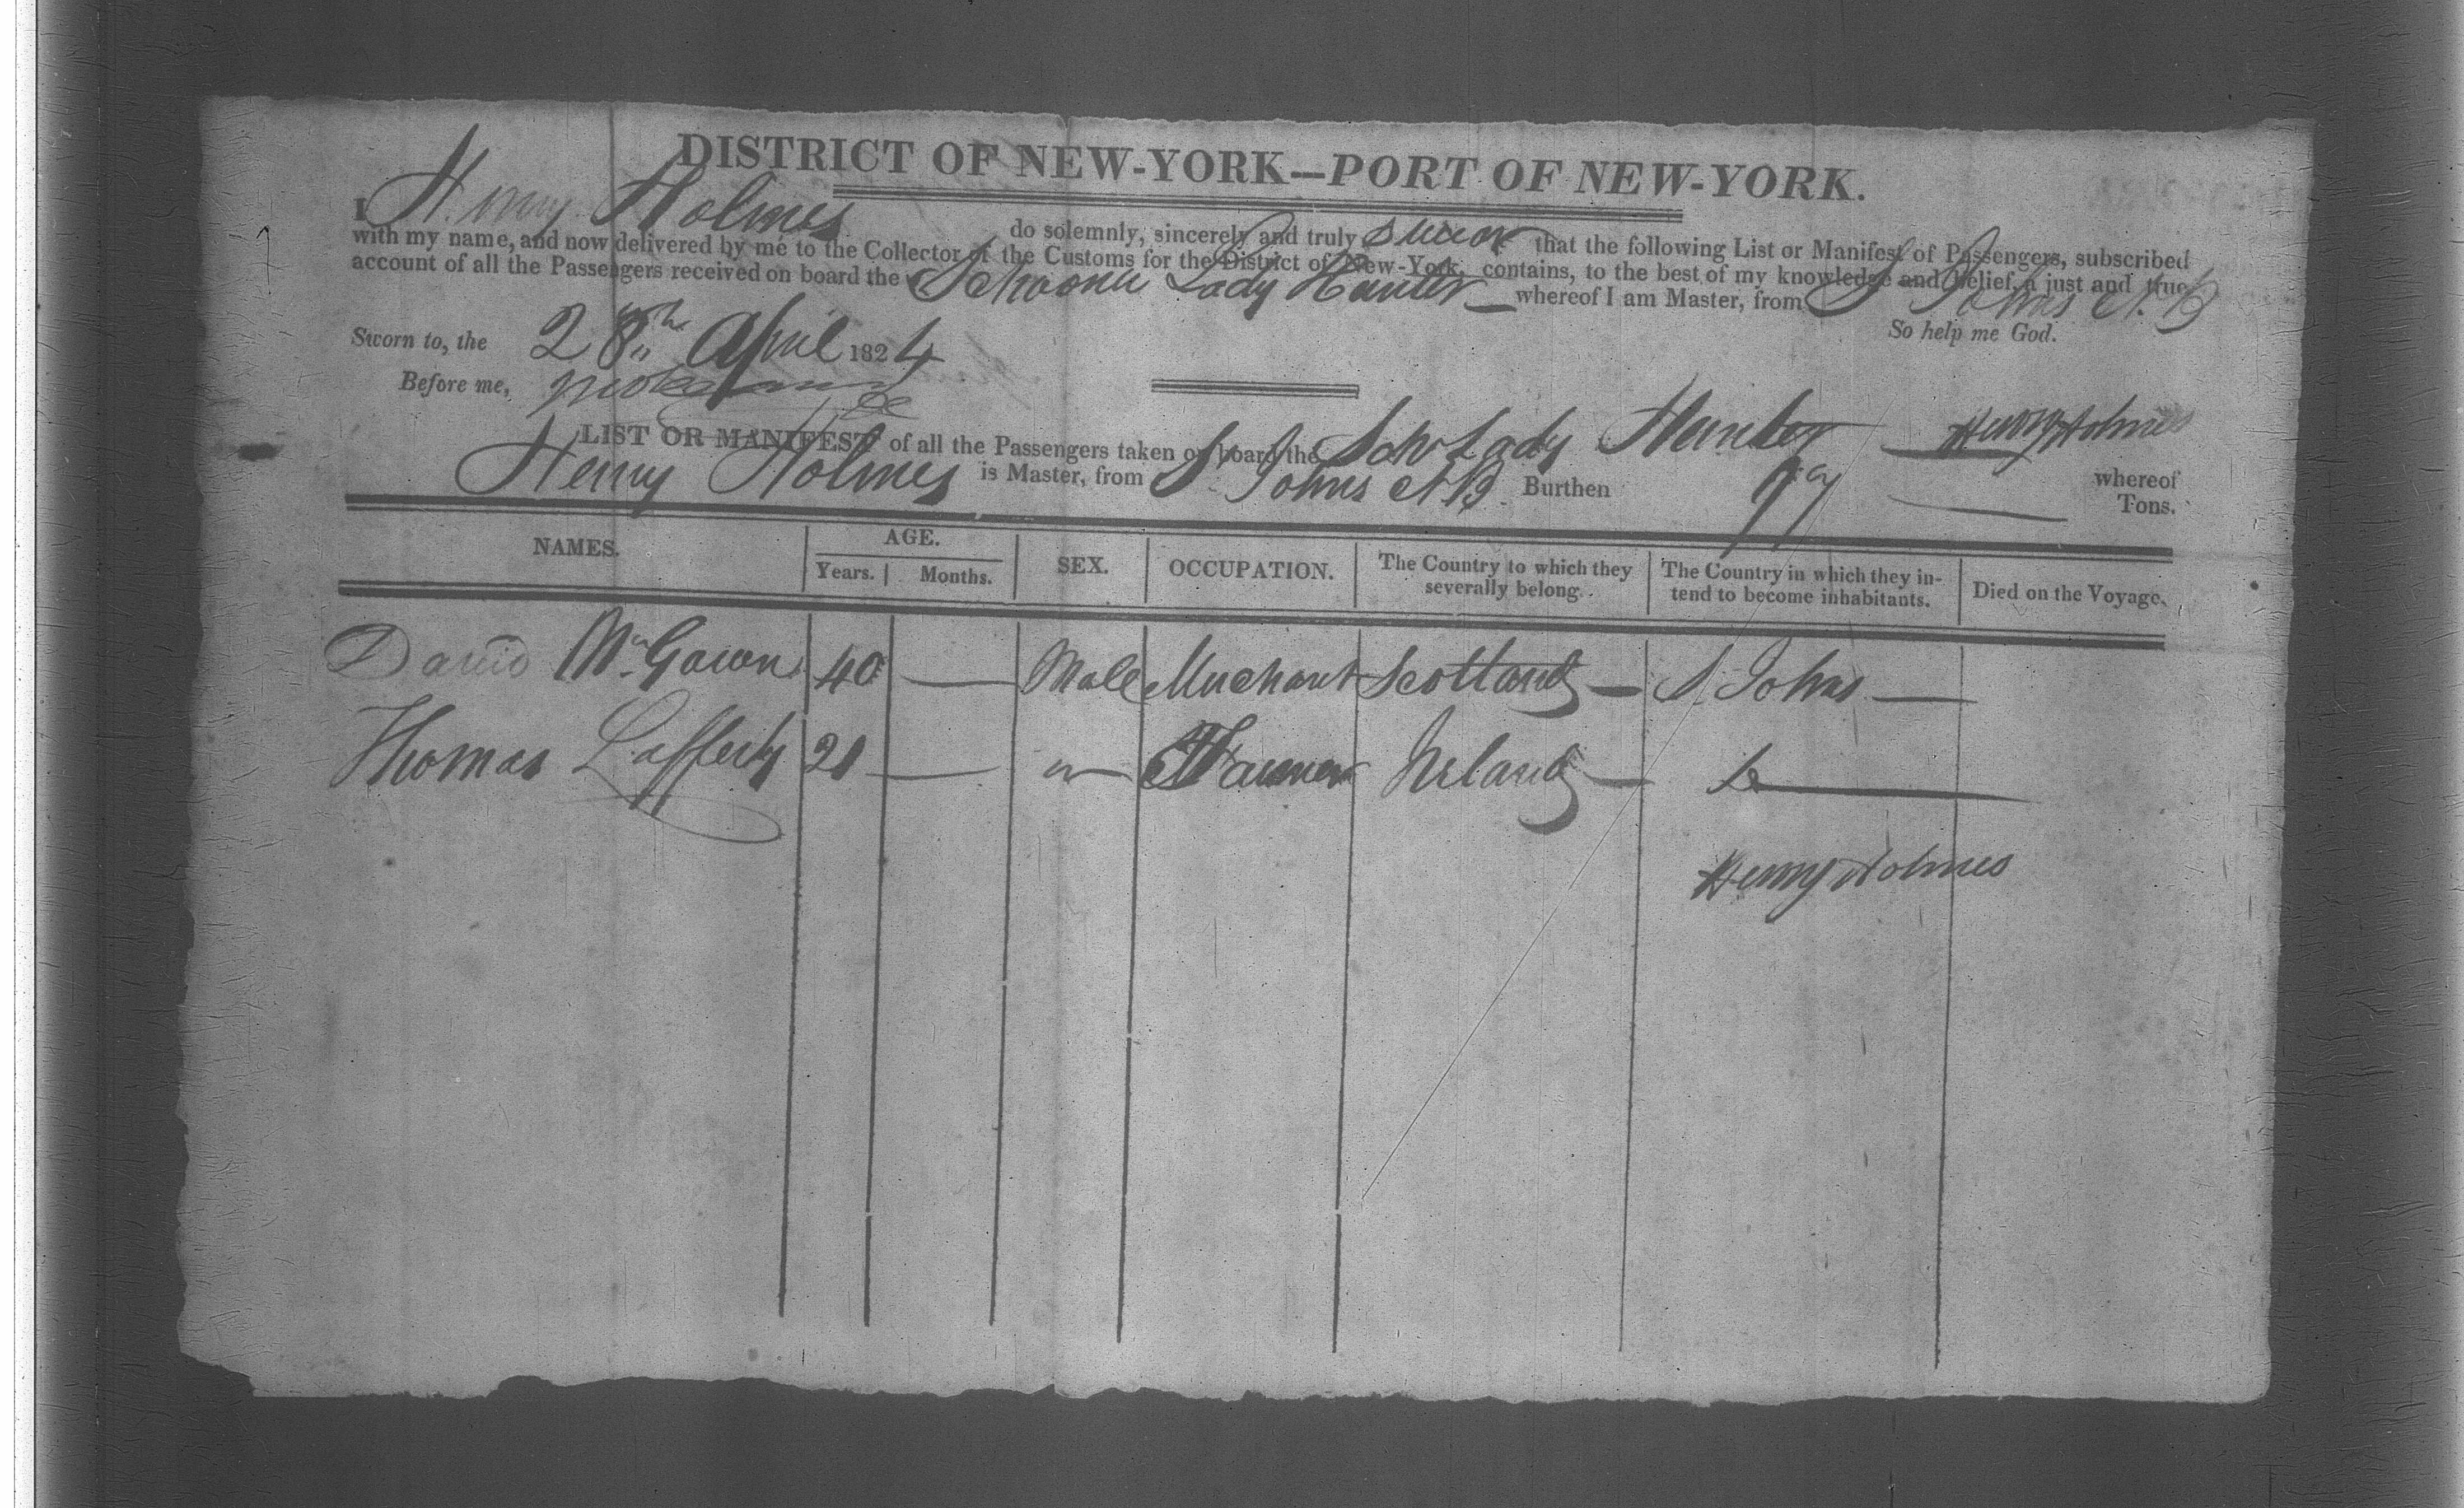 DISTRICT OF NEW-YORK—PORT OF NEW-YORK.
I Henry Holmes do solemnly, sincerely and truly swear that the following List or Manifest of Passengers, subscribed
with my name, and now delivered by me to the Collector of the Customs for the District of New-York, contains, to the best of my knowledge and belief, a just and true
account of all the Passengers received on board the Schooner Lady Hunter whereof I am Master, from S Johns N.B
So help me God.
Sworn to, the 28th April 1824
Before me,
Henry Holmes
LIST OR MANIFEST of all the Passengers taken on board the Schr Lady Hunter whereof
Henry Holmes is Master, from S Johns NB Burthen 97 Tons.
NAMES. AGE. SEX. OCCUPATION. The Country to which they severally belong. The Country in which they intend to become inhabitants. Died on the Voyage.
Years. Months.
David Mc Gown 40 — Male Merchant Scotland — S Johns —
Thomas Lafferty 21 — Farmer Ireland —
Henry Holmes